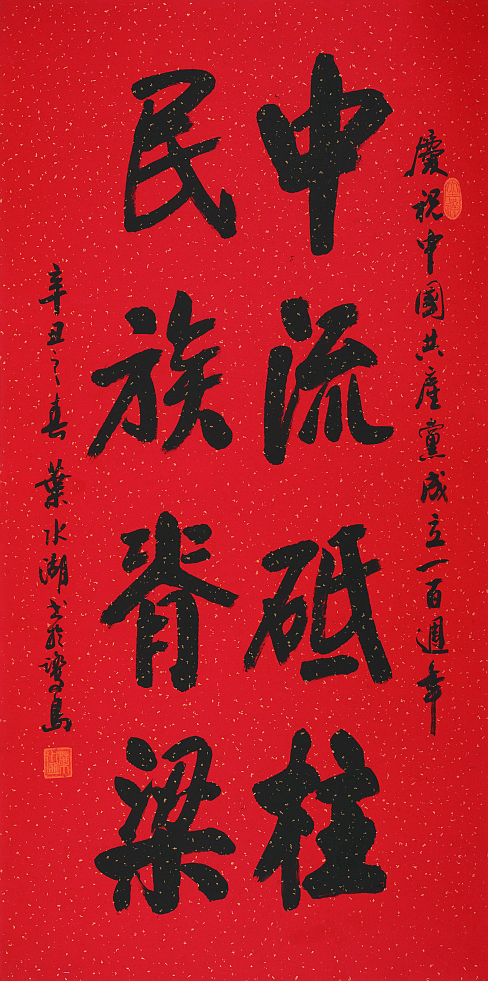 慶祝中國共産黨成立一百週年
中流砥柱
民族脊梁
辛丑之春葉水湖书於鹭島